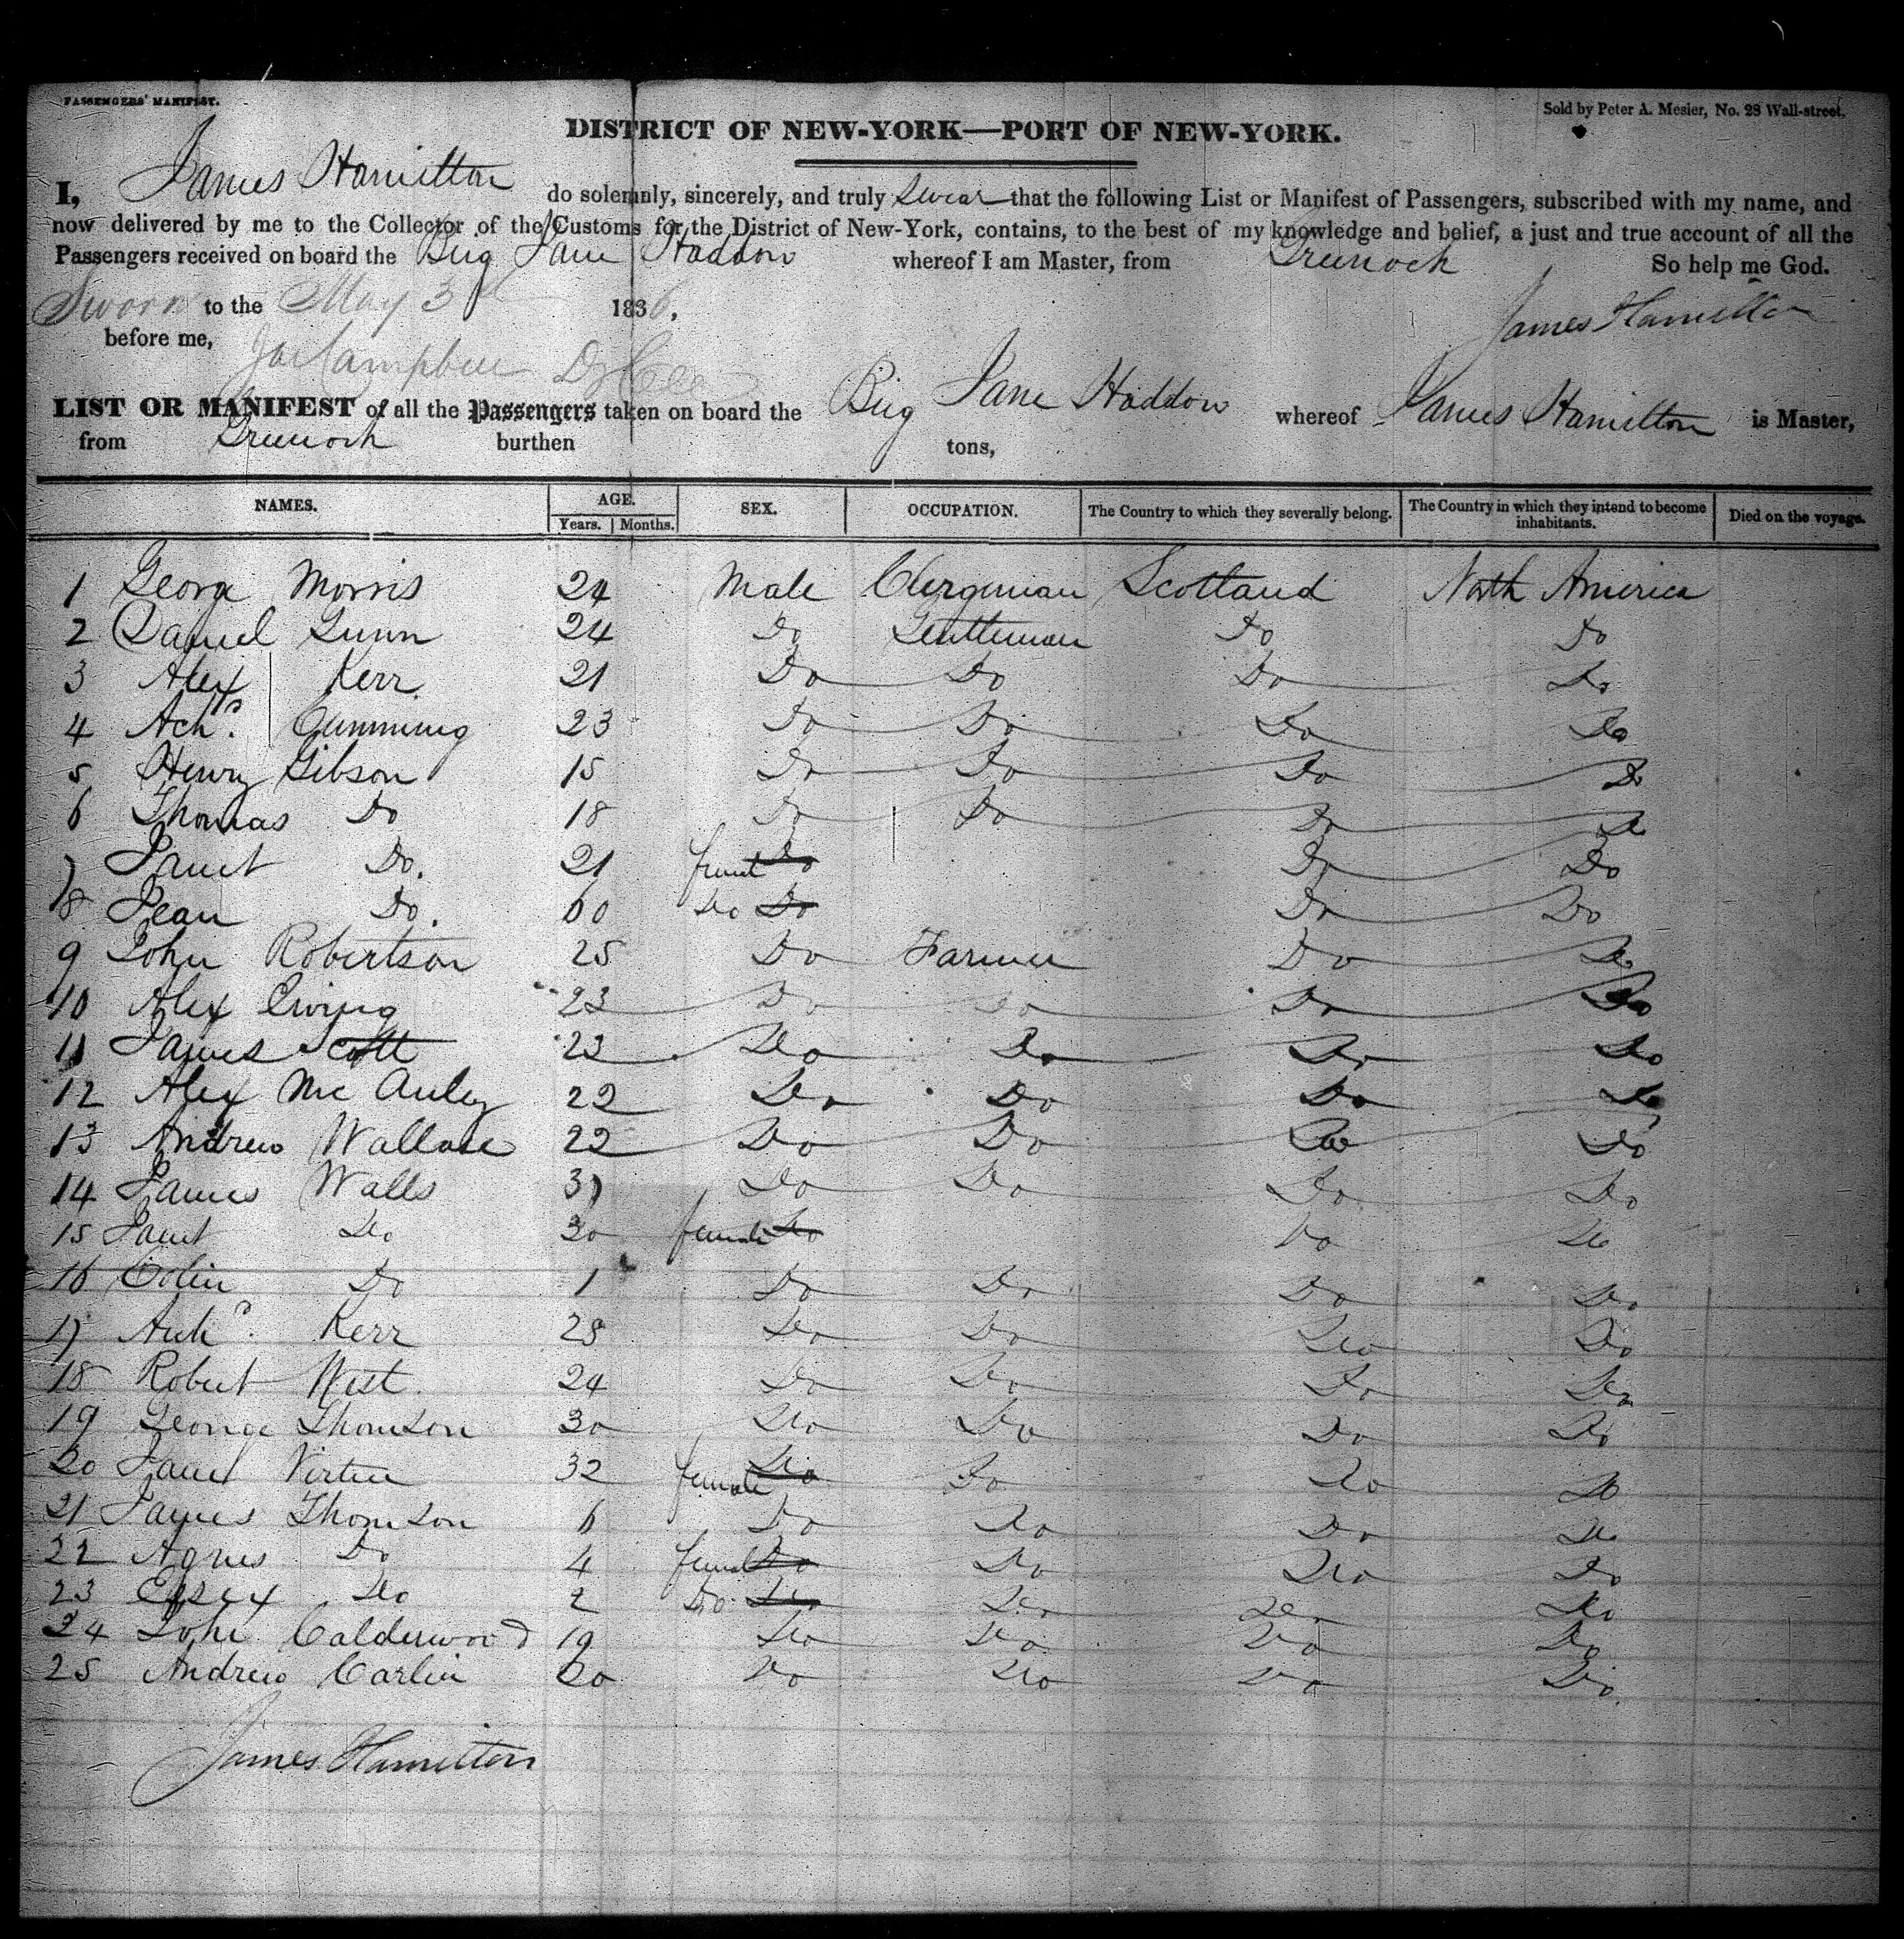 PASSENGERS' MANIFEST.
Sold by Peter A. Mesier, No. 28 Wall-street.
DISTRICT OF NEW-YORK—PORT OF NEW-YORK.
I, James Hamilton do solemnly, sincerely, and truly Swear that the following List or Manifest of Passengers, subscribed with my name, and
now delivered by me to the Collector of the Customs for the District of New-York, contains, to the best of my knowledge and belief, a just and true account of all the
Passengers received on board the Brig Jane Haddow whereof I am Master, from Greenock So help me God.
Sworn to the May 3d 1836, James Hamilton
before me, Campbell
LIST OR MANIFEST of all the Passengers taken on board the Brig Jane Haddow whereof James Hamilton is Master,
from Greenock burthen tons,
NAMES. AGE. SEX. OCCUPATION. The Country to which they severally belong. The Country in which they intend to become inhabitants. Died on the voyage.
Years. Months.
1 George Morris 24 Male Clergeman Scotland North America
2 Daniel Gunn 24 Do Gentleman Do Do
3 Alex Kerr 21 Do Do Do Do
4 Archd. Cumming 23 Do Do Do Do
5 Henry Gibson 15 Do Do Do Do
6 Thomas Do 18 Do Do Do Do
7 Janet Do. 21 female Do Do Do
8 Jean Do. 60 Do Do Do Do
9 John Robertson 25 Do Farmer Do Do
10 Alex Ewing 23 Do Do Do Do
11 James Scott 23 Do Do Do Do
12 Alex Mc Auley 22 Do Do Do Do
13 Andrew Wallace 22 Do Do Do Do
14 James Walls 37 Do Do Do Do
15 Janet Do 30 female Do Do Do
16 Colin Do 1 Do Do Do Do
17 Archd. Kerr 28 Do Do Do Do
18 Robert West. 24 Do Do Do Do
19 George Thomson 30 Do Do Do Do
20 Janet Virtue 32 female Do Do Do Do
21 James Thomson 6 Do Do Do Do
22 Agnes Do 4 female Do Do Do Do
23 Do 2 Do Do Do Do Do
24 John Calderwood 19 Do Do Do Do
25 Andrew Carlin 20 Do Do Do Do
James Hamilton